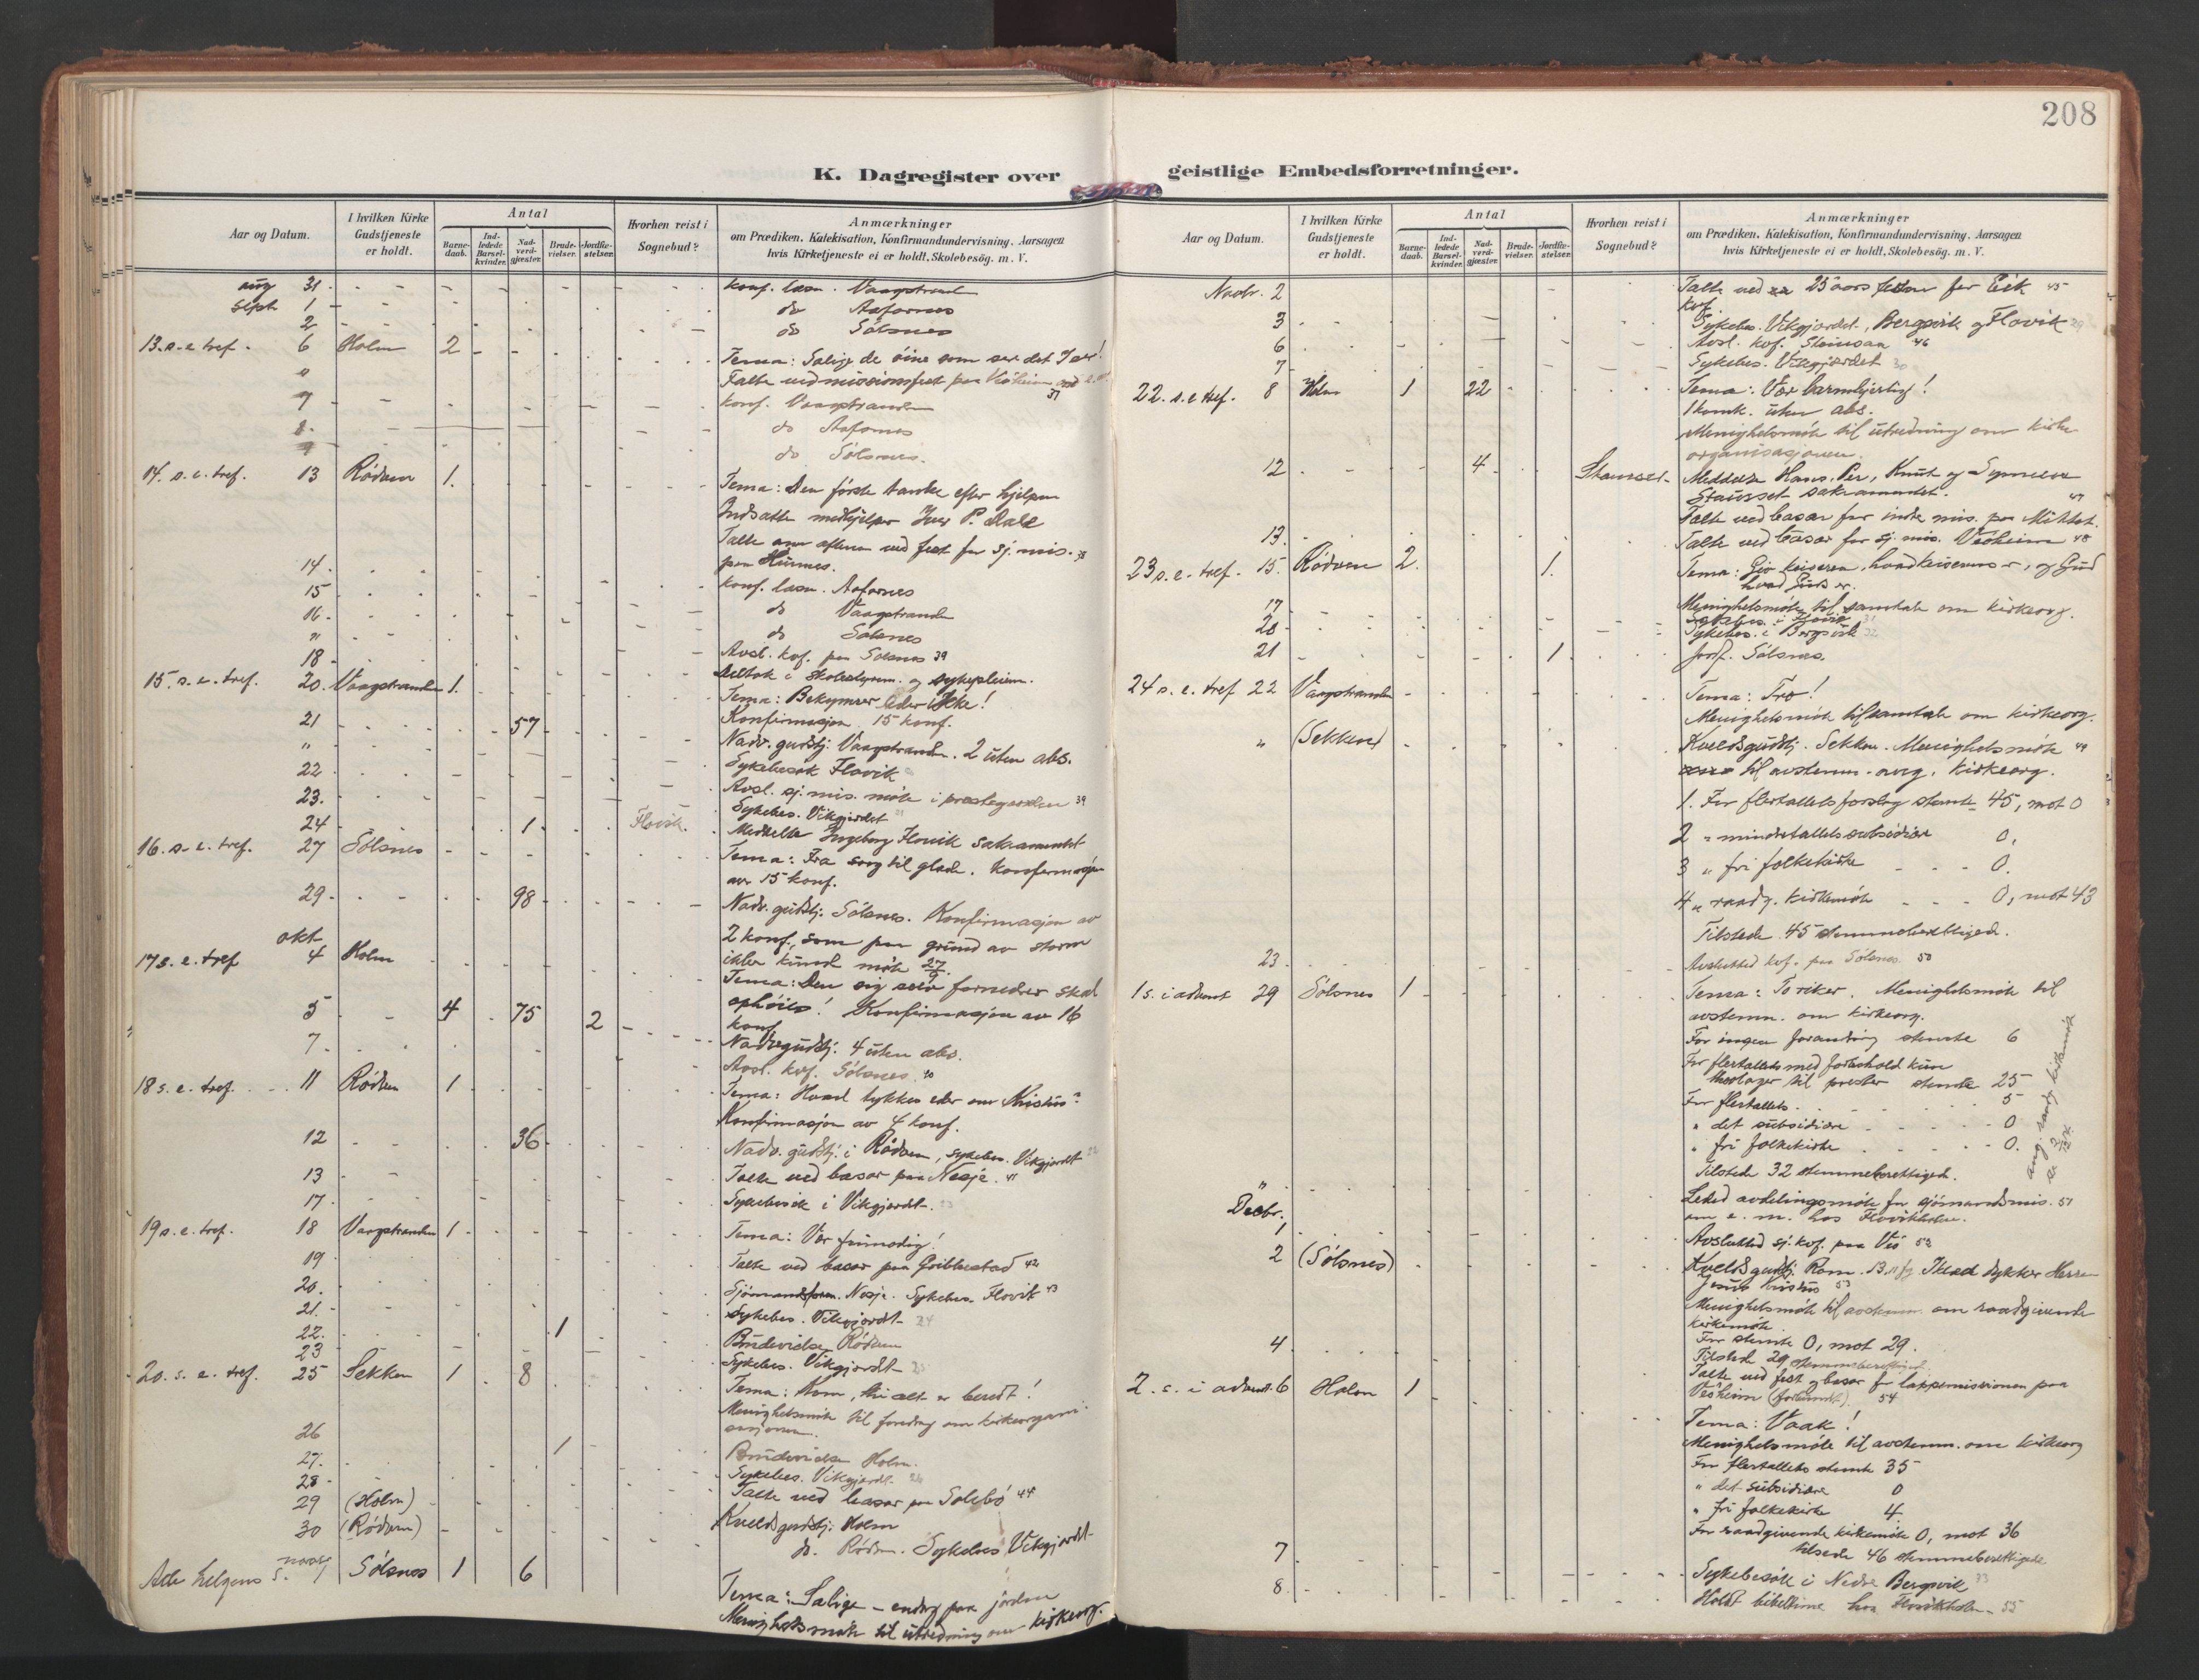 208
K. Dagregister over
geistlige Embedsforretninger.
Aar og Datum.
I hvilken Kirke Gudstjeneste er holdt.
Antal
Barne-daab.
Ind-ledede Barsel-kvinder.
Nad-verd-gjæster.
Brude-vielser.
Jordfæ-stelser.
Hvorhen reist i Sognebud?
Anmærkninger
om Prædiken, Katekisation, Konfirmandundervisning. Aarsagen
hvis Kirketjeneste ei er holdt, Skolebesög. m. V.
aug 31 konf. læsn. Vaagstranden
Sept 1 do Aafarnes
2 do Sölsnes
13. s. e. tref. 6 Holm 2 Tema: Salige de öine som ser det I ser!
" Talte ved missionsfest paa Viöheim 37
7 konf. Vaagstranden
8. do Aafarnes
9 do Sölsnes.
14. s. e. tref. 13 Rödven 1. Tema: Den förste tanke efter hjelpen
Indsatte medhjelper Iver P. Dale
Talte om aftenen ved fest for sj. mis. 38
paa Hurnes.
14. konf. læsn. Aafarnes
15 do Vaagstranden
16. do Sölsnes
" Avsl. kof. paa Sölsnes 39
18 Deltok i skolestyrem. og sykepleiem.
15. s. e. tref. 20. Vaagstranden 1. Tema: Bekymrer eder ikke!
Konfirmasjon 15 konf.
21 57 Nadv. gudstj. Vaagstranden. 2 uten abs.
" Sykebesök Flovik
22 Avsl. sj. mis. möte i prestegaarden 39
23. Sykebes. Vikgjærdet
24 1 Flovik. Meddelte Ingeborg Flovik sakramentet
16. s. e. tref. 27 Sölsnes Tema: Fra sorg til glæde. Konfirmasjon
av 15 konf.
29 98 Nadv. gudstj. Sölsnes. Konfirmasjon av
2 konf., som paa grund av storm
ikke kunde möte 27/9
17 s. e. tref okt 4 Holm Tema: Den sig selv fornedrer skal
ophöies! Konfirmasjon av 16
konf.
5 4 75 2 Nadv. gudstj. 4 uten abs.
7. Avsl. kof. Sölsnes. 40
18 s. e. tref. 11 Rödven 1 Tema: Hvad tykkes eder om Kristus?
Konfirmasjon av 4 konf.
12 36 Nadv. gudstj. i Rödven, sykebes. Vikgjærdt
13 Talte ved basar paa Nesje. 41
17 Sykebesök i Vikgjærdt.
19 s. e. tref. 18 Vaagstranden 1 Tema: Vær frimodig!
19 Talte ved basar paa Gribbestad 42
20. Sjömandsforen. Nesje. Sykebes. Flovik 43
21. Sykebes. Vikgjærdt 24
22. 1 Brudevielse Rödven
23 Sykebes. Vikgjærdt 25
20. s. e. tref. 25 Sekken 1 8 Tema: Kom, thi alt er beredt!
Menighetsmöte til foredrag om kirkeorgani-
sasjonen.
26 1 Brudevielse Holm.
27. Sykebes. Vikgjærdt. 26
28 Talte ved basar paa Solebö 44
29 (Holm) Kveldsgudstj. Holm
30 (Rödven) do. Rödven. Sykebes Vikgjærdt
Alle helgens s. novbr 1 Sölsnes 1 6 Tema: Salige - endog paa jorden
Menighetsmöte til utredning om kirkeorg.
Aar og Datum.
I hvilken Kirke Gudstjeneste er holdt.
Antal
Barne-daab.
Ind-ledede Barsel-kvinder.
Nad-verd-gjæster.
Brude-vielser.
Jordfæ-stelser.
Hvorhen reist i Sognebud?
Anmærkninger
om Prædiken, Katekisation, Konfirmandundervisning. Aarsagen
hvis Kirketjeneste ei er holdt, Skolebesög. m. V.
Novbr. 2 Talte ved 25 aars festen for Eik 45
kof.
3 Sykebes. Vikgjærdet, Bergsvik og Flovik 29
6 Avsl. kof. 46
7 Sykebes. Vikgjærdet 30
22. s. e. tref. 8 Holm 1 22 Tema: Vær barmhjertig!
1 komk. uten abs.
Menighetsmöte til utredning om kirke
organisasjonen.
12 4 Meddelte Hans, Per, Knut og
Stausset sakramentet. 47
Talte ved basar for indre mis. paa Mittet.
13. Talte ved basar for sj. mis. Viöheim 48
23 s. e. tref. 15. Rödven 2. 1. Tema: Giv keiseren, hvad keiserens er, og Gud
hvad Guds er.
Menighetsmöte til samtale om kirkeorg.
17 Sykebes. i Flovik 31
20 Sykebes. i Bergsvik 32
21 1 Jordf. Sölsnes.
24 s. e. tref 22 Vaagstranden Tema: Tro!
Menighetsmöte til samtale om kirkeorg.
" (Sekken) Kveldsgudstj. Sekken. Menighetsmöte 49
til avstemn. ang. kirkeorg.
1. For flertallets forslag stemte 45, mot 0
2 " mindretallets subsidiære 0,
3 " fri folkekirke 0.
4 " raadg. kirkemöte 0, mot 43
Tilstede 45 stemmeberettigede.
23 Avsluttet kof. paa Sölsnes 50
1 s. i advent 29 Sölsnes 1 Tema: To riker. Menighetsmöte til
avstemn. om kirkeorg.
For ingen forandring stemte 6
For flertallets med forbehold kun
theologer til prester stemte 25
For flertallets 5
" det subsidiære 0
" fri folkekirke 0.
Tilstede 32 stemmeberettigede.
ang. raadg. kirkemöte
se 2/12 14.
" Ledet avdelingsmöte for sjömandsmis. 51
om e. m. hos Flovikholm.
Decbr. 1 Avsluttet sj. kof. paa Viö 52
2 (Sölsnes) Kveldsgudstj. Rom. 13. Iklæd dykker Herren
Jesus Kristus 53
Menighetsmöte til avstemn. om raadgivende
kirkemöte
For stemte 0, mot 29.
Tilstede 29 stemmeberettiget.
4 Talte ved fest og basar for lappemissionen paa
Viöheim 54
2. s. i advent. 6 Holm 1 Tema: Vaak!
Menighetsmöte til avstemn. om kirkeorg
For flertallets stemte 35
" det subsidiære 0
" fri folkekirke 4
For raadgivende kirkemöte 0, mot 36
tilstede 46 stemmeberettigede
7 Sykebesök i Nedre Bergsvik 33
8. Holdt bibeltime hos Flovikholm 55